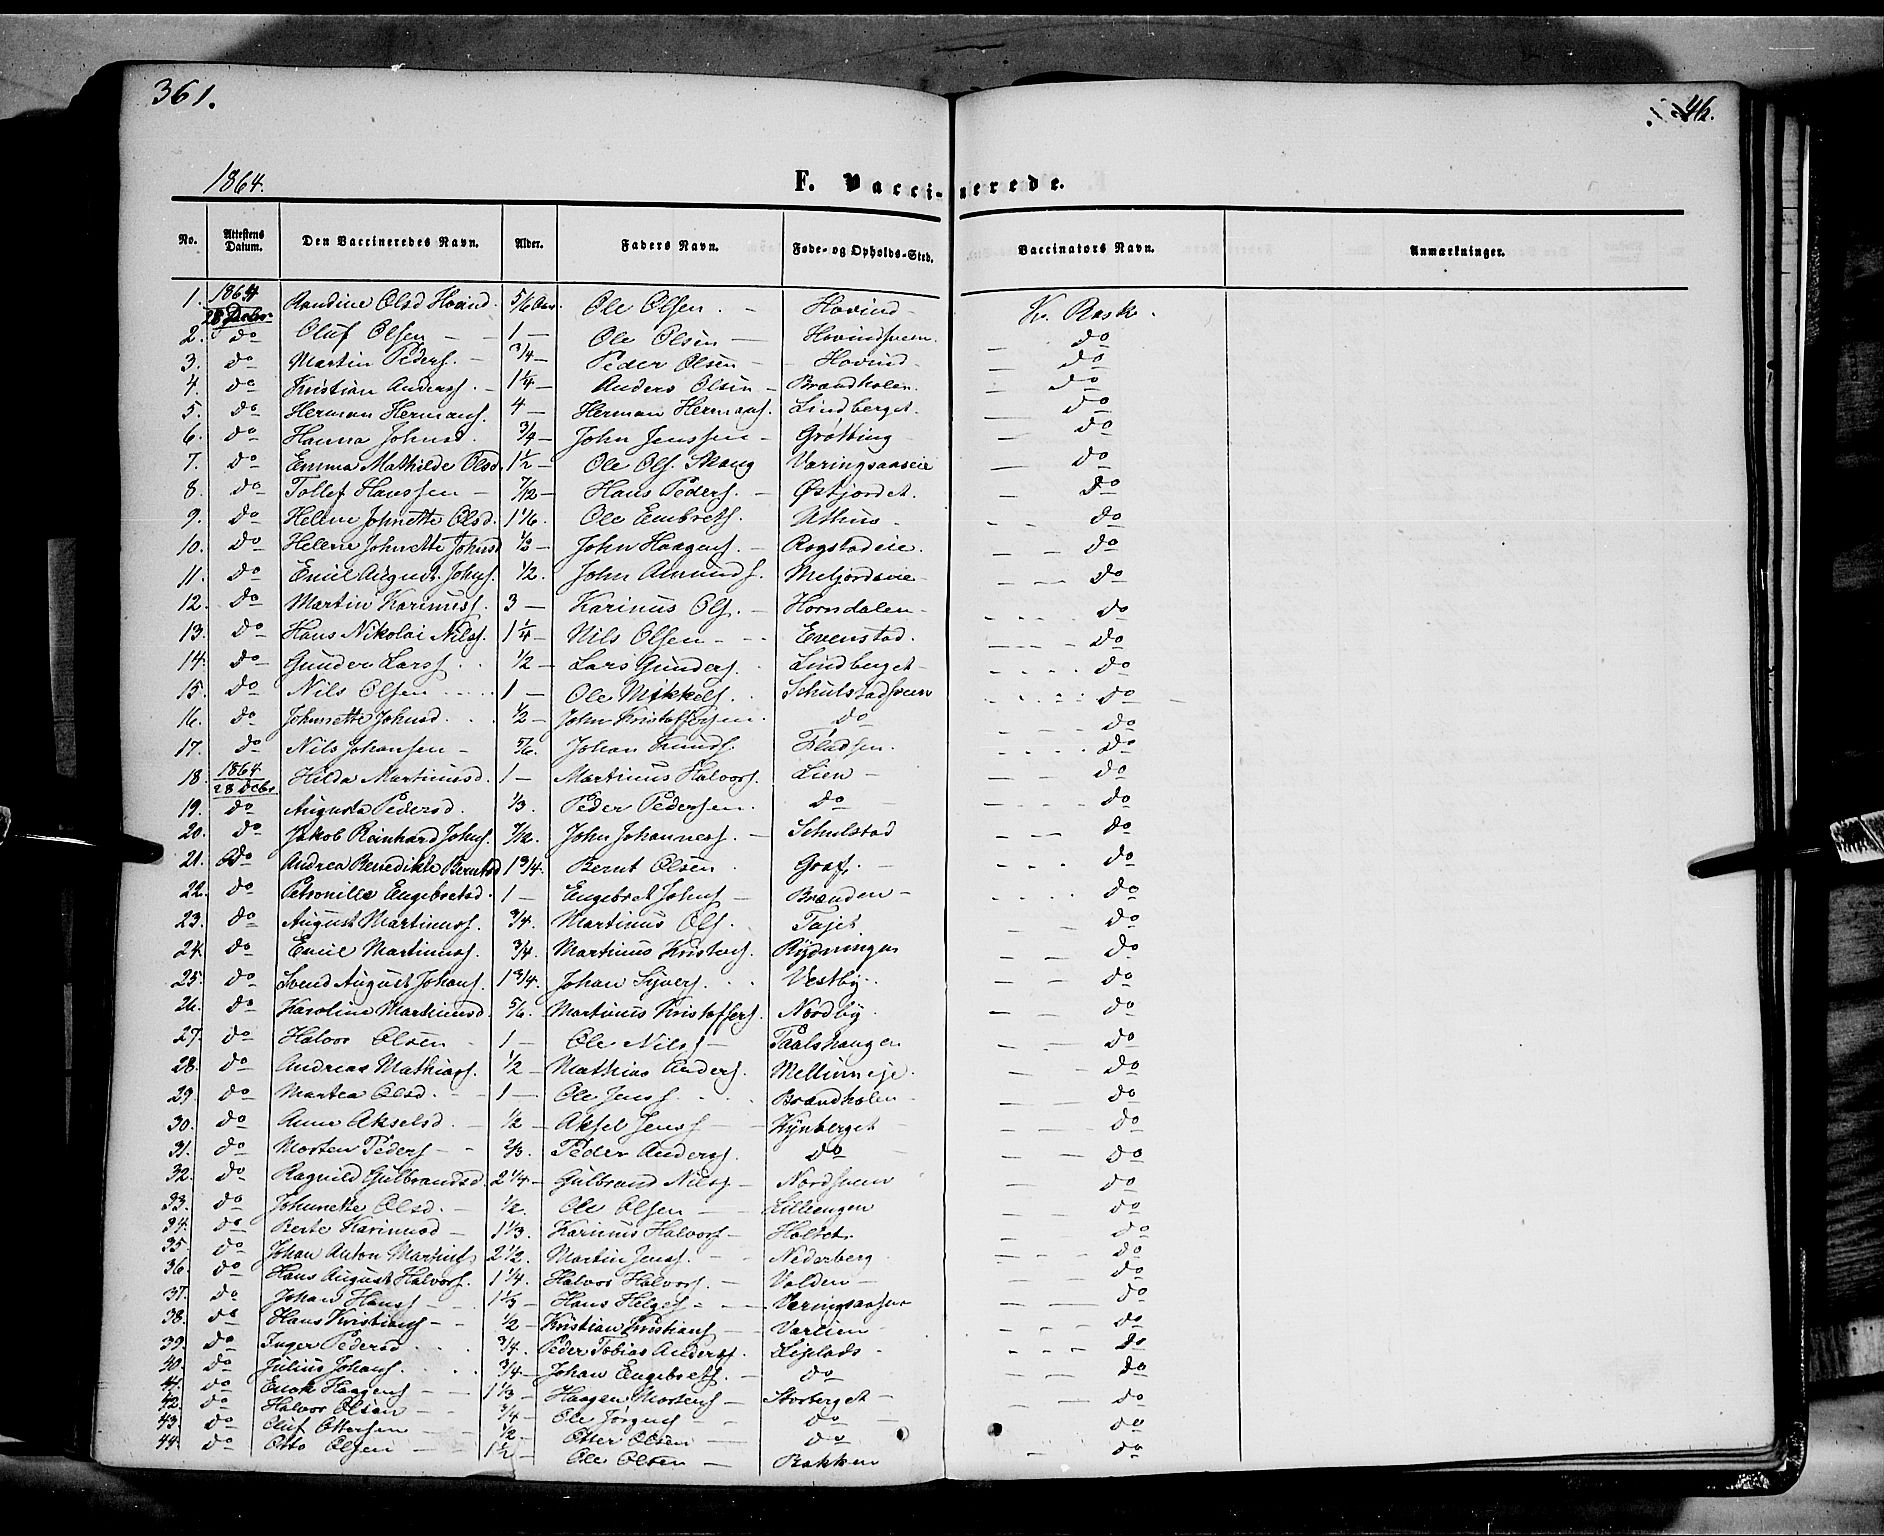 361.
46.
1864.
F. Vaccinerede.
No. Attestens Datum. Den Vaccineredes Navn. Alder. Faders Navn. Føde- og Opholds-Sted. Vaccinators Navn. Anmærkninger.
1. 1864 28 Decbr Randine Olsd Hovind. 5/6 Aar. Ole Olsen. — Hovind — Kr. Rask.
2. do Oluf Olsen — 1 — Ole Olsen — Hovindsveen. — do
3. do Martin Peders. — 3/4 — Peder Olsen — Hovind — do
4. do Kristian Anders. — 1 1/4 — Anders Olsen — Brændholen — do
5. do Herman Hermans. 4 — Herman Hermans. Lindberget. — do
6. do Hanna Johnsd. 3/4 — John Jenssen — Grøtting — do
7. do Emma Mathilde Olsd. 1 1/2 — Ole Ols. Skaug Væringsaaseie — do
8. do Tollef Hanssen — 7/12 — Hans Peders. — Østjordet. — do
9. do Helene Johnette Olsd. 1 1/6. Ole Embrets. Uthus — do
10. do Helene Johnette Johnsd 1/2 — John Haagens. — Rogstadeie. — do
11. do Emil August Johns. 1/2. John Amunds. Meljordseie — do
12. do Martin Karinuss. 3 — Karinus Ols. — Horndalen — do
13. do Hans Nikolai Nilss. 1 1/4 — Nils Olsen — Evenstad. — do
14. do Gunder Larss. 1/2 — Lars Gunders. Lindberget — do
15. do Nils Olsen 1 — Ole Mikkels. Schulstadsveen — do
16. do Johnette Johnsd. 1/2 — John Kristoffersen. do — do
17. do Nils Johansen — 5/6. Johan Amunds. Fladsen. — do
18. 1864 28 Decbr Hilda Martinusd. 1 — Martinus Halvors. Lien — do
19. do Augusta Pedersd. 1/3. Peder Pedersen. do — do
20. do Jakob Reinhard Johns. 7/12. John Johanness. — Schulstad — do
21. do Andrea Benedikte Berntsd 1 3/4. Bernt Olsen Graf. — do
22. do Petronille Engebretsd. 1 — Engebret Johns. — Brænden — do
23. do August Martinuss. 3/4. Martinus Ols. Tajet. — do
24. do Emil Martinuss. 3/4. Martinus Kristians. Rydningen — do
25. do Svend August Johans. 1 3/4. Johan Syvers. Vestby. — do
26. do Karoline Martinusd. 5/6. Martinus Kristoffers. Nordby. — do
27. do Halvor Olsen 1 — Ole Nilss — Paalshaugen — do
28. do Andreas Mathiass. 1/2 — Mathias Anders. Mellumeje. — do
29. do Martea Olsd. — 1 — Ole Jenss. Brændholen — do
30. do Anne Akselsd. — 1/2 — Aksel Jenss — Kynberget — do
31. do Morten Peders — 2/3. Peder Anderss. do — do
32. do Ragnild Gulbrandsd. 2 1/4 — Gulbrand Nilss. — Nordsveen — do
33. do Johnette Olsd. — 1/2. Ole Olsen — Lilleengen — do
34. do Berte Karinusd — 1 1/3. Karinus Halvors — Holtet. — do
35. do Johan Anton Martins. 2 1/2. Martin Jenss. — Nederberg — do
36. do Hans August Halvors. 1 1/4. Halvor Halvors. — Volden — do
37. do Johan Hanss — 1 1/3 — Hans Helges — Væringsaasen — do
38. do Hans Kristians — 1/2 — Kristian Kristians — Varlien — do
39. do Inger Pedersd 3/4. Peder Tobias Anderss. — do
40. do Julius Johans. 3/4 — Johan Engebrets. — do — do
41. do Enok Haagens — 1 1/3 — Haagen Mortens — Storberget — do
42. do Halvor Olsen — 3/4 — Ole Jørgens — do — do
43. do Oluf Ottersen — 1/2 — Otter Olsen — do — do
44. do Otto Olsen — 1 1/2 — Ole Olsen — Bakken — do